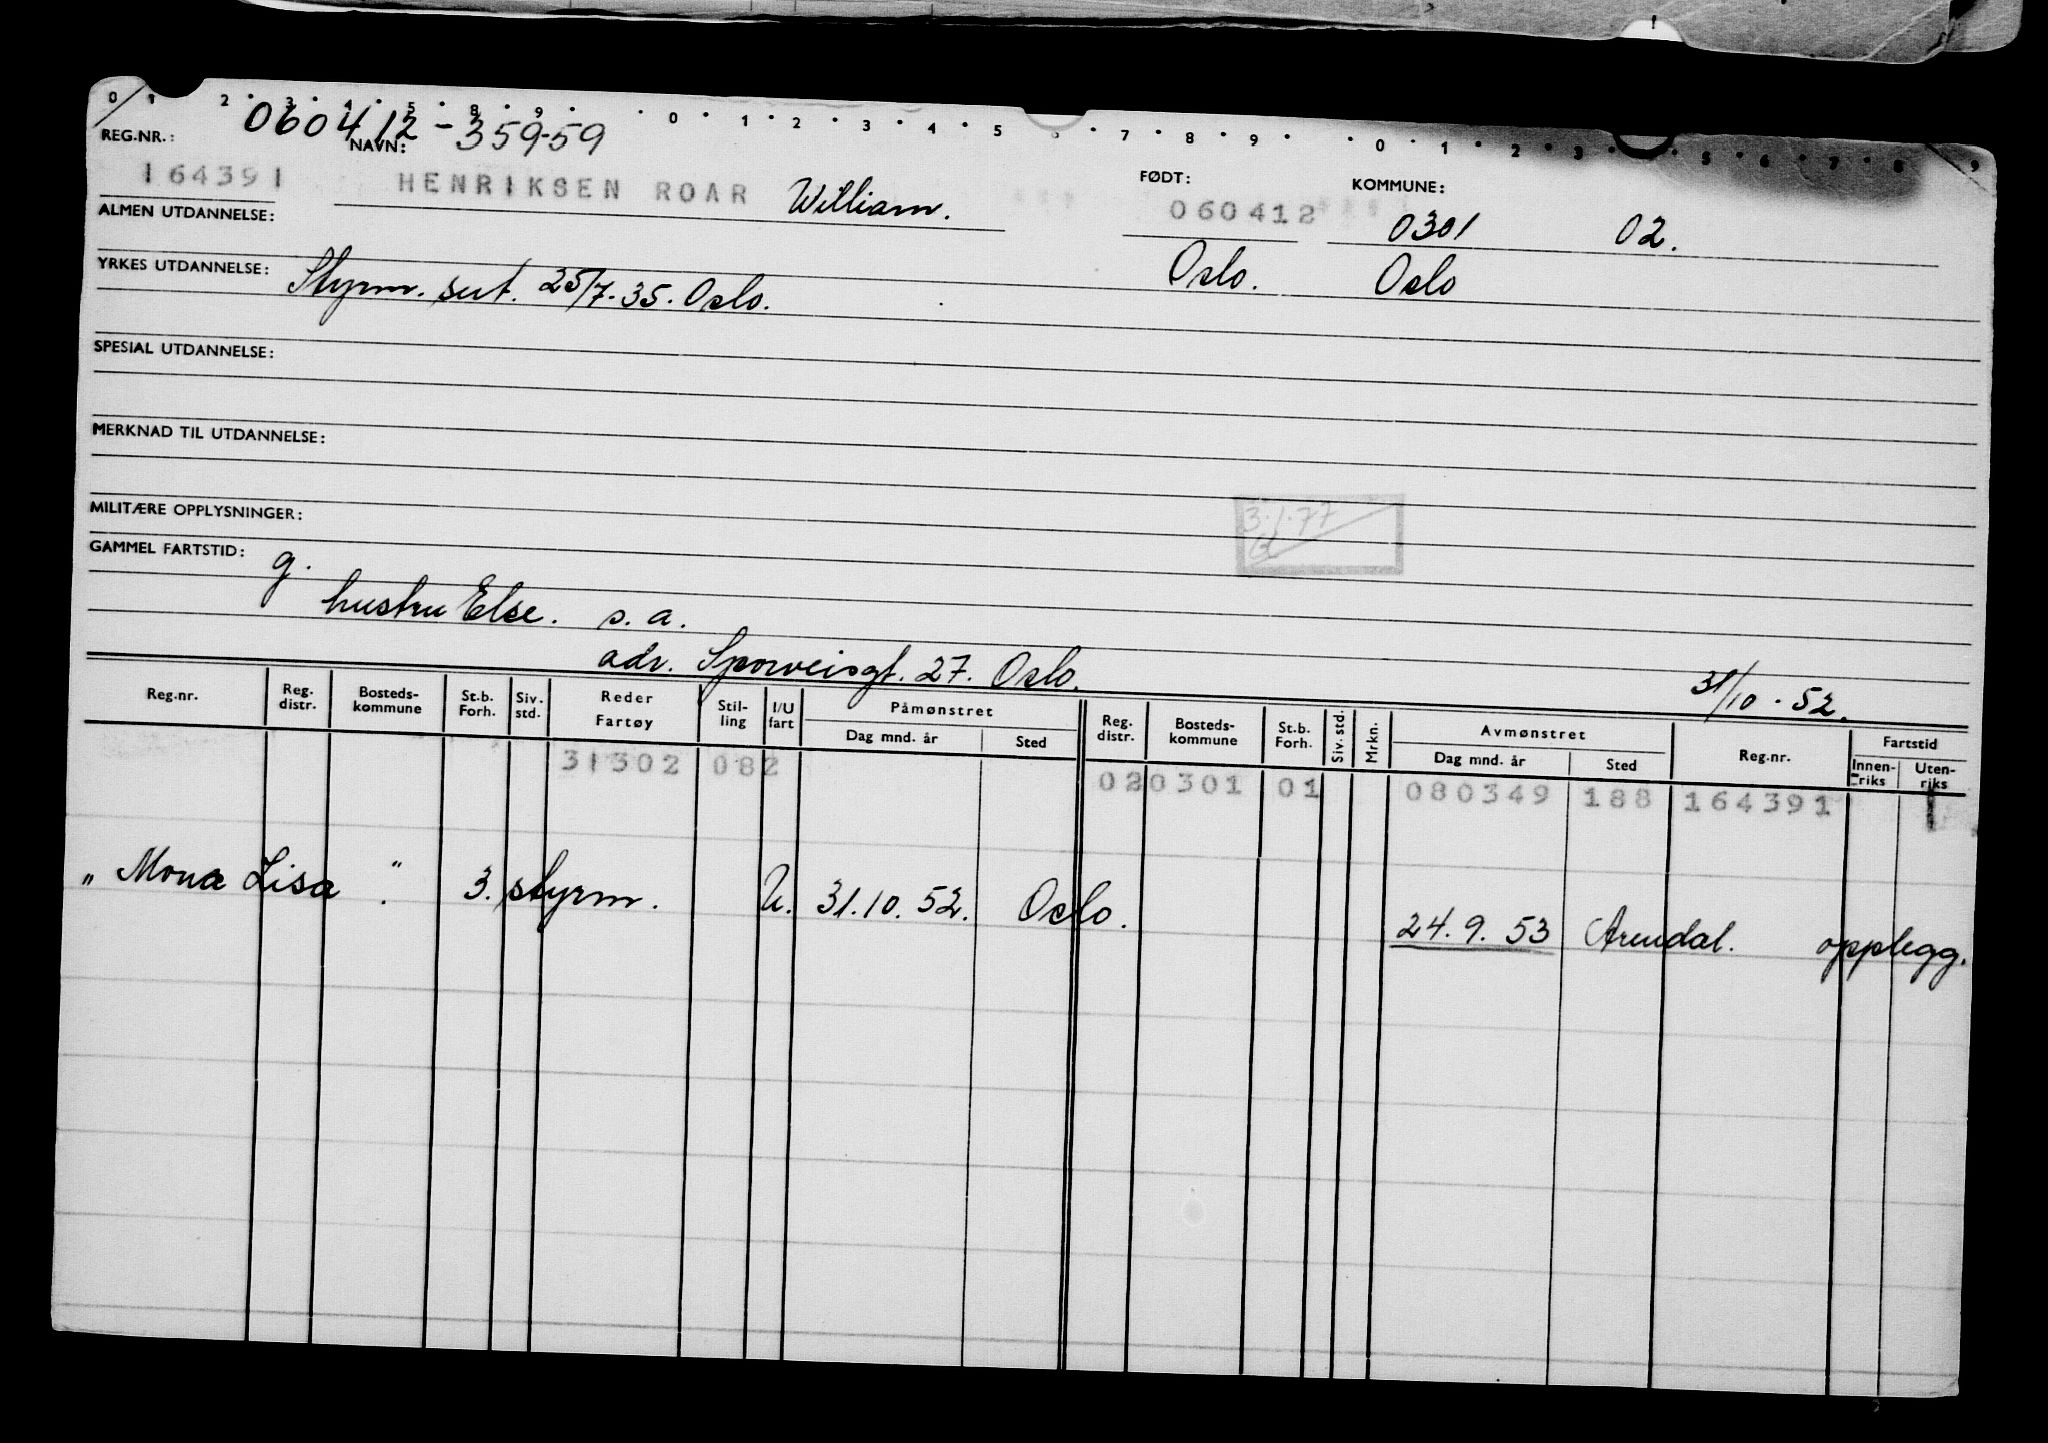 0 1 2 3 4 5 8 9 0 1 2 3 4 5 6 7 8 9 0 1 2 3 5 6 7 8 9
060412-359-59
REG.NR.: NAVN: FØDT: KOMMUNE:
164391 HENRIKSEN ROAR William. 060412 0301 02.
ALMEN UTDANNELSE:
Oslo. Oslo
YRKES UTDANNELSE: Styrm. sert. 25/7-35. Oslo.
SPESIAL UTDANNELSE:
MERKNAD TIL UTDANNELSE:
3.1.77
MILITÆRE OPPLYSNINGER:
GAMMEL FARTSTID: g.
hustru Else. s. a.
adr. Sporveisgt. 27. Oslo. 31/10.52.
Reg.nr. Reg. distr. Bosteds-kommune St.b. Forh. Siv. std. Reder Fartøy Stil-ling I/U fart Påmønstret Dag mnd. år Sted Reg. distr. Bosteds-kommune St.b. Forh. Siv. std. Mrkn. Avmønstret Dag mnd. år Sted Reg.nr. Fartstid Innen-riks Uten-riks
31302 082 020301 01 080349 188 164391 1
„ Mona Lisa “. 3. styrm. U. 31.10.52. Oslo. 24.9.53 Arendal. opplegg.